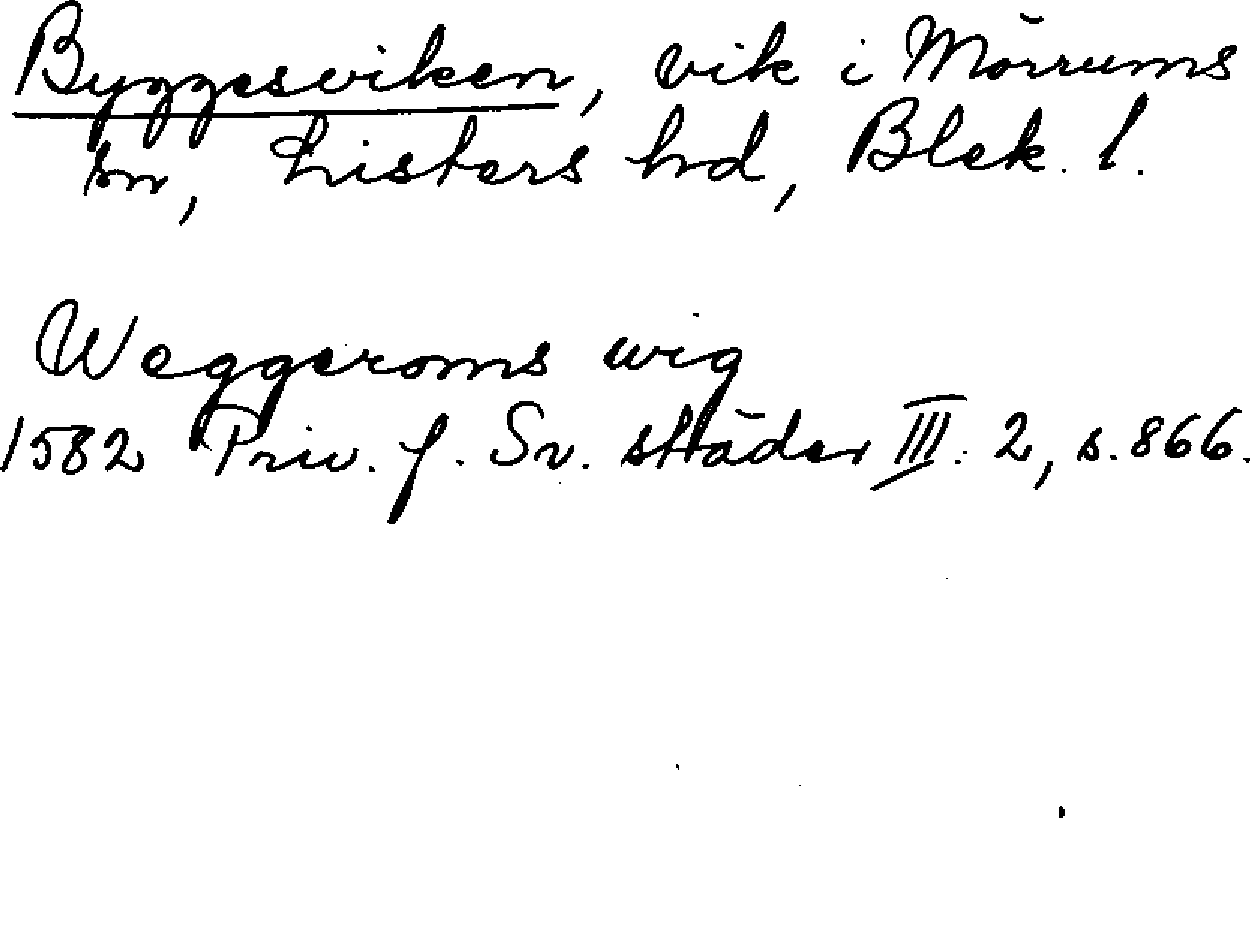 Byggesviken, vik i Mörrums
sn, Listers hd, Blek. l.
Weggeroms wig
1582 Priv. f. Sv. städer III: 2, s. 866.